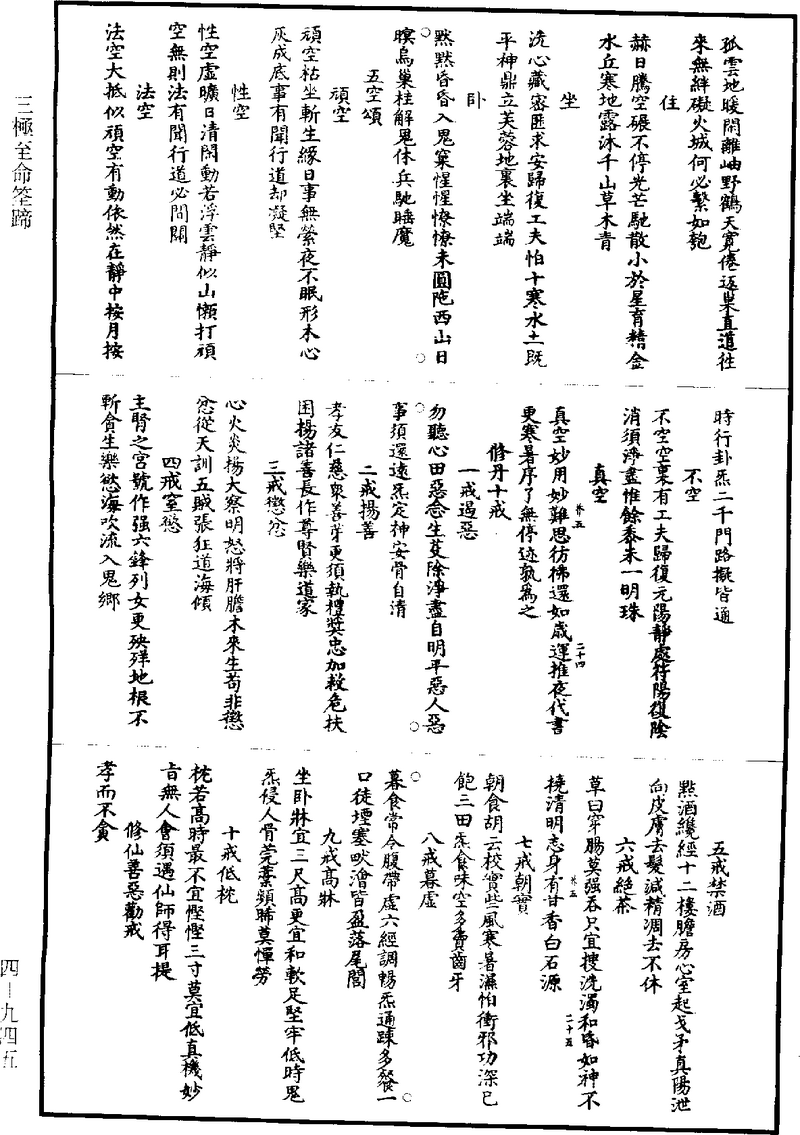 孤雲地暖閑離岫野鶴天寬倦返巢直道往
來無絆礙火城何必繫如匏
住
赫日騰空碾不停光芒馳散小於星育精金
水丘寒地露沐千山草木青
坐
洗心藏密匪求安歸復工夫怕十寒水土既
平神鼎立芙蓉地裏坐端端
卧
黙黙昏昏入鬼窠惺惺憭憭未圓陁西山日
暝烏巢桂解鬼休兵馳睡魔
五空頌
頑空
頑空枯坐斬生緣日事無縈夜不眠形木心
灰成底事有聞行道却凝堅
性空
性空虛曠日清閑動若浮雲靜似山懶打頑
空無則法有聞行道必問關
法空
法空大抵似頑空有動依然在靜中按月按
時行卦炁二千門路擬皆通
不空
不空空裏有工夫歸復元陽靜處符陽復陰
消須淨盡惟餘黍米一明珠
真空
真空妙用妙難思彷彿還如歲運推夜代書
更寒暑序了無停迹孰爲之
卷五
二十四
修丹十戒
一戒遏惡
勿聽心田惡念生芟除淨盡自明平惡人惡
事須還遠炁定神安骨自清
二戒揚善
孝友仁慈衆善芽更須執禮奬忠加救危扶
困揚諸善長作尊賢樂道家
三戒懲忿
心火炎揚大察明怒將肝膽木來生苟非懲
忿從天訓五賊張狂道海傾
四戒窒慾
主腎之宮號作强六鋒列女更殃殍地根不
斬貪生樂慾海吹流入鬼鄉
五戒禁酒
點酒纔經十二樓膽房心室起戈矛真陽泄
向皮膚去髮減精凋去不休
六戒絕茶
草曰穿腸莫强吞只宜搜洗濁和昏如神不
撓清明志身有甘香白石源
卷五
二十五
七戒朝實
朝食胡云校實些風寒暑濕怕衝邪功深已
飽三田炁食味空多費齒牙
八戒暮虛
暮食常令腹帶虛六經調暢炁通踈多餐一
口徒堙塞畎澮皆盈落尾閭
九戒高牀
坐卧牀宜三尺高更宜和軟足堅牢低時鬼
炁侵人骨莞蒉頻晞莫憚勞
十戒低枕
枕若高時最不宜慳慳三寸莫宜低真機妙
旨無人會須遇仙師得耳提
修仙善惡勸戒
孝而不貪
三極至命筌蹄
四—九四五